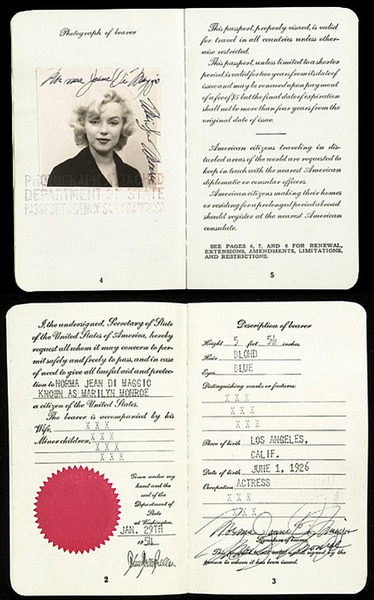 Photograph of bearer
Norma Jeane Di Maggio
PHOTOGRAPH ATTACHED
DEPARTMENT OF STATE
PASSPORT AGENCY SAN FRANCISCO
4
This passport, properly visaed, is valid
for travel in all countries unless other-
wise restricted.
This passport, unless limited to a shorter
period, is valid for two years from its date of
issue and may be renewed upon payment
of a fee of $5 but the final date of expiration
shall not be more than four years from the
original date of issue.
American citizens traveling in dis-
turbed areas of the world are requested to
keep in touch with the nearest American
diplomatic or consular officers.
American citizens making their homes
or residing for a prolonged period abroad
should register at the nearest American
consulate.
SEE PAGES 6, 7, AND 8 FOR RENEWAL,
EXTENSIONS, AMENDMENTS, LIMITATIONS,
AND RESTRICTIONS.
5
I, the undersigned, Secretary of State
of the United States of America, hereby
request all whom it may concern to per-
mit safely and freely to pass, and in case
of need to give all lawful aid and protec-
tion to NORMA JEAN DI MAGGIO
KNOWN AS MARILYN MONROE
a citizen of the United States.
The bearer is accompanied by his
Wife, X X X
Minor children, X X X
X X X
X X X
Given under my
hand and the
seal of the
Department of
State
at Washington,
JAN. 29TH
1954
2
Description of bearer
Height 5 feet 5½ inches
Hair BLOND
Eyes BLUE
Distinguishing marks or features:
X X X
X X X
X X X
Place of birth LOS ANGELES,
CALIF.
Date of birth JUNE 1, 1926
Occupation ACTRESS
X X X
X X X
Norma Jeane Di Maggio
Signature of bearer
This passport is not valid until signed by the
person to whom it has been issued.
3